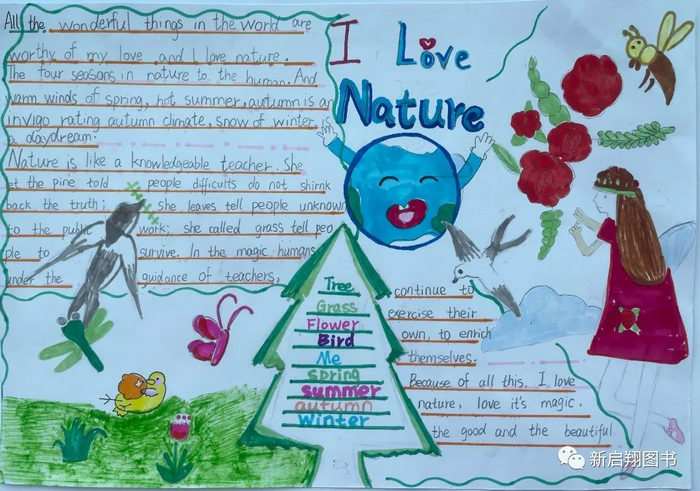 I Love
Nature
All the wonderful things in the world are
worthy of my love .and I love nature.
The four seasons in nature to the human. And
warm winds of spring, hot summer, autumn is an
invigo rating autumn climate, snow of winter is
a daydream.
Nature is like a knowledgeable teacher. She
let the pine told people difficults do not shirnk
back the truth; she leaves tell people unknown
to the public work; she called grass tell peo
ple to survive. In the magic humans
under the guidance of teachers,
Tree
Grass
Flower
Bird
Me
spring
summer
autumn
winter
continue to
exercise their
own, to enrich
themselves.
Because of all this, I love
nature, love it's magic.
the good and the beautiful
新启翔图书